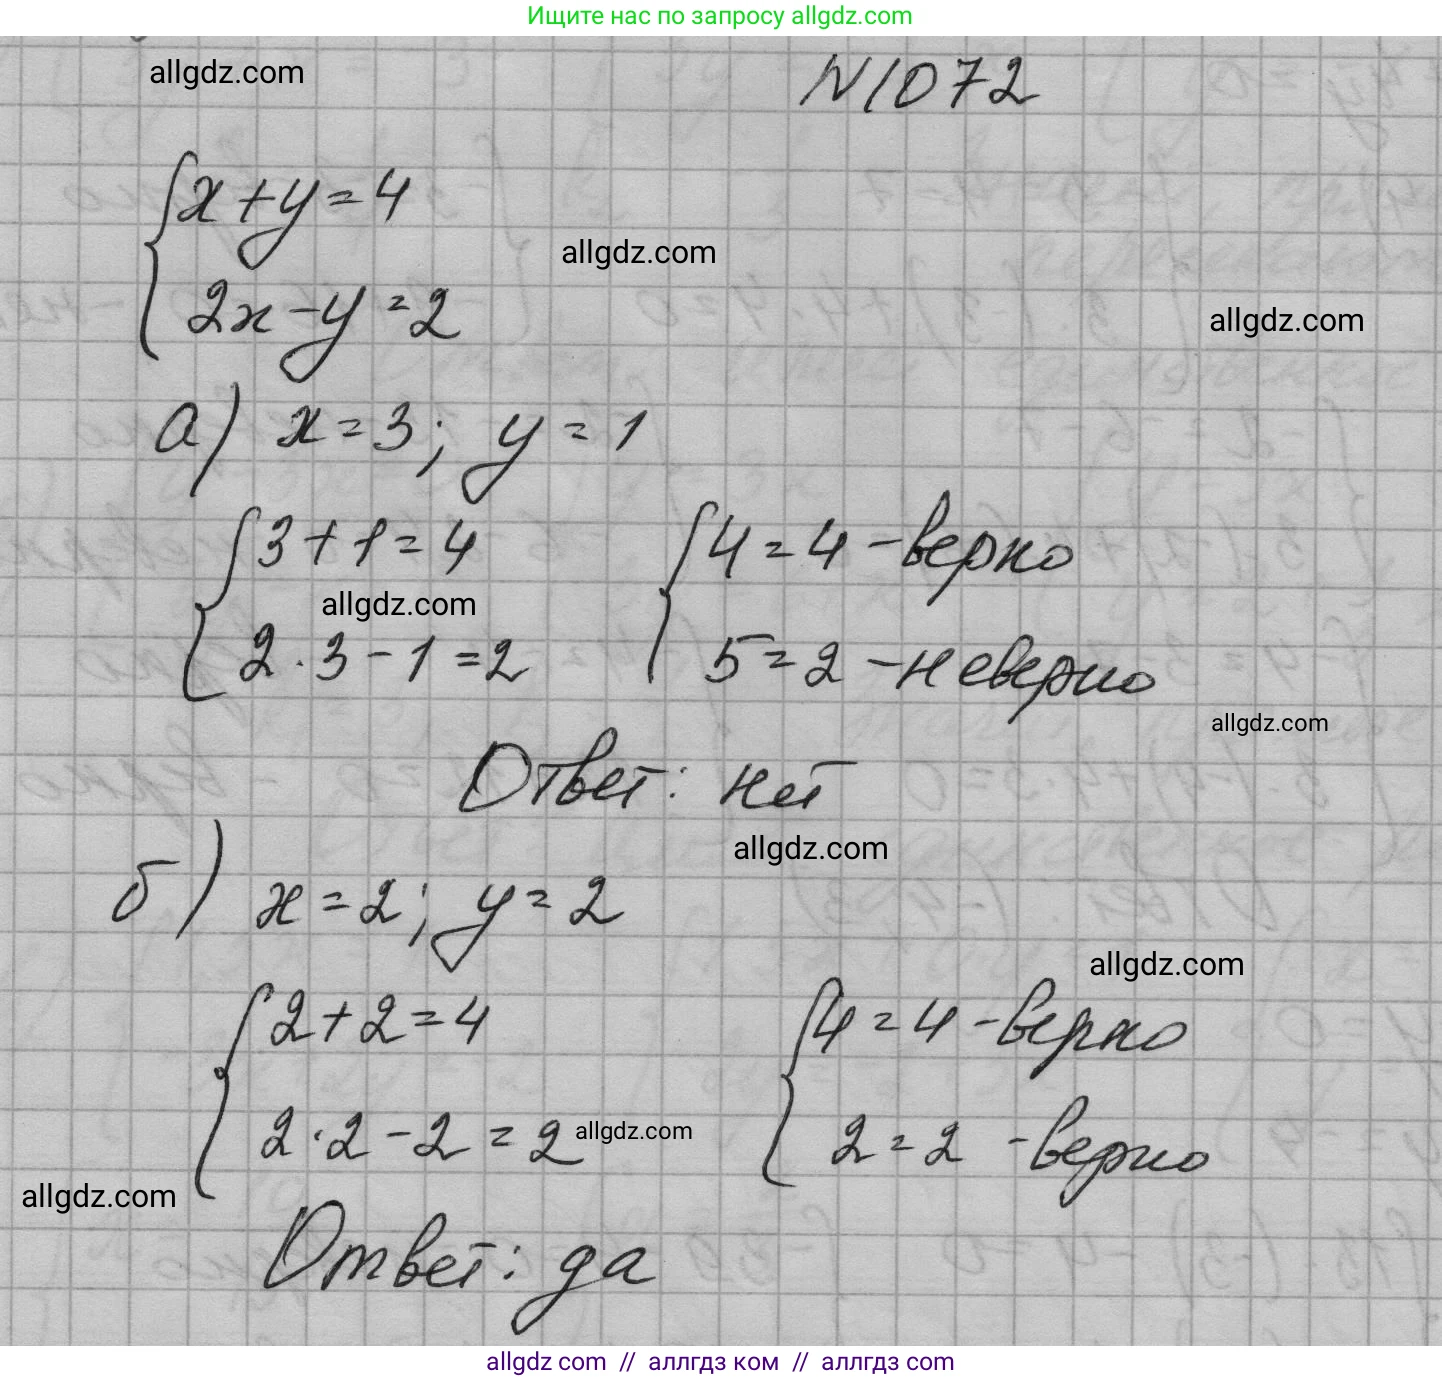 Ищите нас по запросу allgdz.com
allgdz.com
N1072
x+y=4
allgdz.com
2x-y=2
allgdz.com
а) x=3; y=1
3+1=4 4=4 -верно
allgdz.com
2·3-1=2 5=2 -неверно
allgdz.com
Ответ: нет
allgdz.com
б) x=2; y=2
allgdz.com
2+2=4 4=4 -верно
2·2-2=2 allgdz.com 2=2 -верно
allgdz.com
Ответ: да
allgdz com // аллгдз ком // аллгдз com